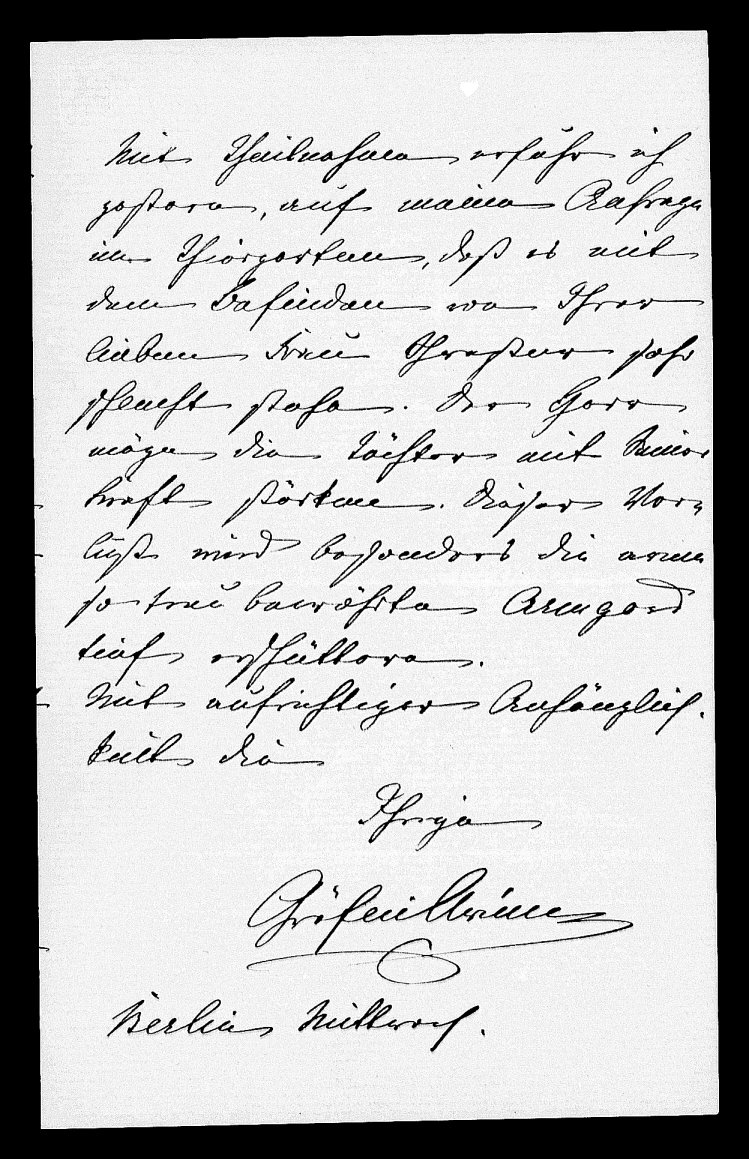 Mit Theilnahme erfuhr ich
gestern, auf meine Anfrage
im Thiergarten, daß es mit
dem Befinden von Ihrer
lieben Frau Schwester sehr
schlecht stehe. Der Herr
möge die Töchter mit Seiner
Kraft stärken. Dieser Ver-
lust wird besonders die arme
so treu bewährte Armgard
tief erschüttern.
Mit aufrichtiger Anhänglich-
keit die
Ihrige
Gräfin Arnim
Berlin Mittwoch.